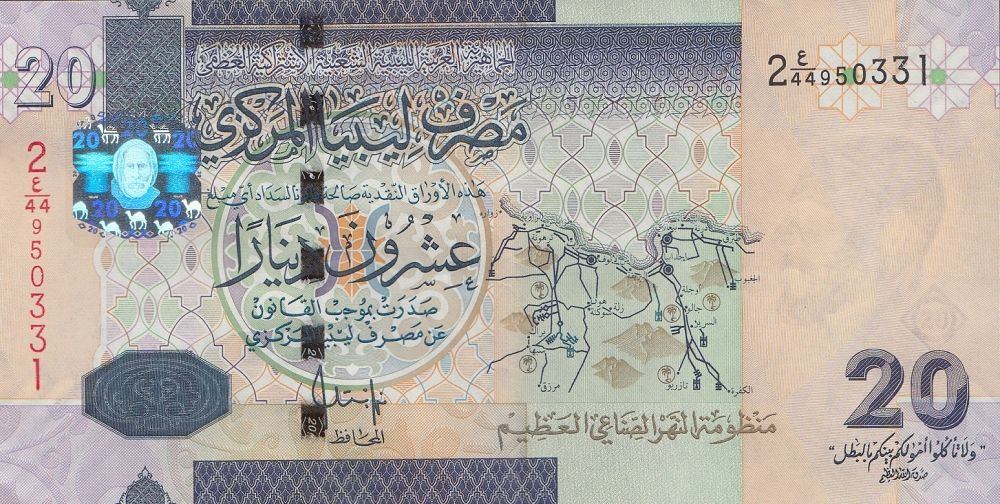 الجماهيرية العربية الليبية الشعبية الاشتراكية العظمى
20
2 ع/44 950331
مصرف ليبيا المركزي
20
20
20
20
2 ع/44 950331
هذه الأوراق النقدية صالحة للسداد أي مبلغ
عشرون ديناراً
صدرت بموجب القانون
عن مصرف ليبيا المركزي
زواره
هون
زلة
مرزق
أوجلة
جالو
السرير
تازربو
الكفرة
المحافظ
منظومة النهر الصناعي العظيم
20
"ولا تأكلوا أموالكم بينكم بالبطل"
صدق الله العظيم